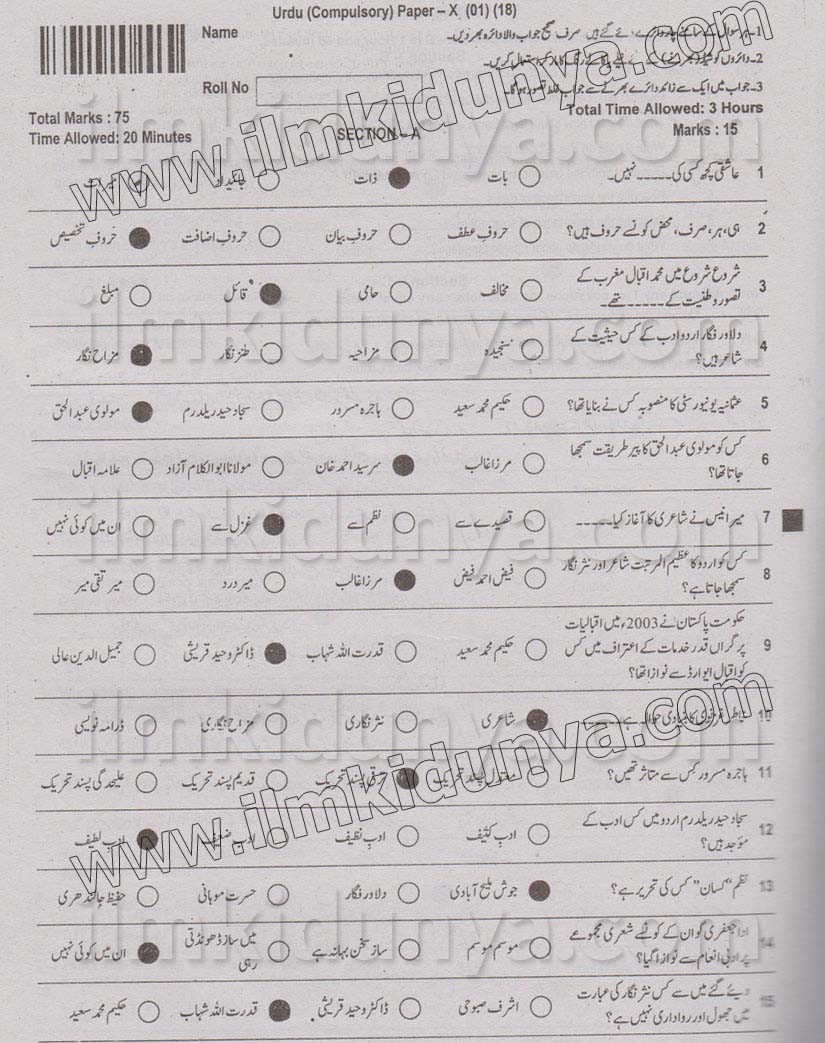 Urdu (Compulsory) Paper – X (01) (18)
Name
1- ہر سوال کے سامنے چار دائرے دئے گئے ہیں صرف صحیح جواب والا دائرہ بھر دیں۔
2- دائروں کو
استعمال کریں۔
Roll No
3- جواب میں ایک سے زائد دائرے بھرنے سے جواب غلط تصور ہوگا۔
Total Marks : 75
Total Time Allowed: 3 Hours
Time Allowed: 20 Minutes
SECTION – A
Marks : 15
1 عاشقی کچھ کسی کی ۔۔۔۔۔ نہیں۔ بات ذات جاگیر
2 ہی، ہر، صرف، محض کونسے حروف ہیں؟ حروفِ عطف حروفِ بیان حروفِ اضافت حروفِ تخصیص
3 شروع شروع میں محمد اقبال مغرب کے
تصور وطنیت کے ۔۔۔۔۔ تھے۔ مخالف حامی قائل مبلغ
4 دلاور فگار اردو ادب کے کس حیثیت کے
شاعر ہیں؟ سنجیدہ مزاحیہ طنز نگار مزاح نگار
5 عثمانیہ یونیورسٹی کا منصوبہ کس نے بنایا تھا؟ حکیم محمد سعید ہاجرہ مسرور سجاد حیدر یلدرم مولوی عبدالحق
6 کس کو مولوی عبدالحق کا پیر طریقت سمجھا
جاتا تھا؟ مرزا غالب سرسید احمد خان مولانا ابوالکلام آزاد علامہ اقبال
7 میر انیس نے شاعری کا آغاز کیا ۔۔۔۔۔ قصیدے سے نظم سے غزل سے ان میں کوئی نہیں
8 کس کو اردو کا عظیم المرتبت شاعر اور نثر نگار
سمجھا جاتا ہے؟ فیض احمد فیض مرزا غالب میر درد میر تقی میر
حکومت پاکستان نے 2003ء میں اقبالیات
9 پر گراں قدر خدمات کے اعتراف میں کس
کو اقبال ایوارڈ سے نوازا تھا؟ حکیم محمد سعید قدرت اللہ شہاب ڈاکٹر وحید قریشی جمیل الدین عالی
10 ناطق غزنوی کا بنیادی حوالہ ہے ۔۔۔۔۔ شاعری نثر نگاری مزاح نگاری ڈرامہ نویسی
11 ہاجرہ مسرور کس سے متاثر تھیں؟ معقول پسند تحریک ترقی پسند تحریک قدیم پسند تحریک علیحدگی پسند تحریک
12 سجاد حیدر یلدرم اردو میں کس ادب کے
موجد ہیں؟ ادبِ کثیف ادبِ نظیف ادبِ ضعیف ادبِ لطیف
13 نظم "کسان" کس کی تحریر ہے؟ جوش ملیح آبادی دلاور فگار حسرت موہانی حفیظ جالندھری
14 ادا جعفری کو ان کے کونسے شعری مجموعے
پر ادبی انعام سے نوازا گیا؟ موسم موسم ساز سخن بہانہ ہے میں ساز ڈھونڈتی رہی ان میں کوئی نہیں
15 دیئے گئے میں سے کس نثر نگار کی عبارت
میں جھول اور رواداری نہیں ہے؟ اشرف صبوحی ڈاکٹر وحید قریشی قدرت اللہ شہاب حکیم محمد سعید
www.ilmkidunya.com
www.ilmkidunya.com
ilmkidunya.com
ilmkidunya.com
ilmkidunya.com
ilmkidunya.com
ilmkidunya.com
ilmkidunya.com